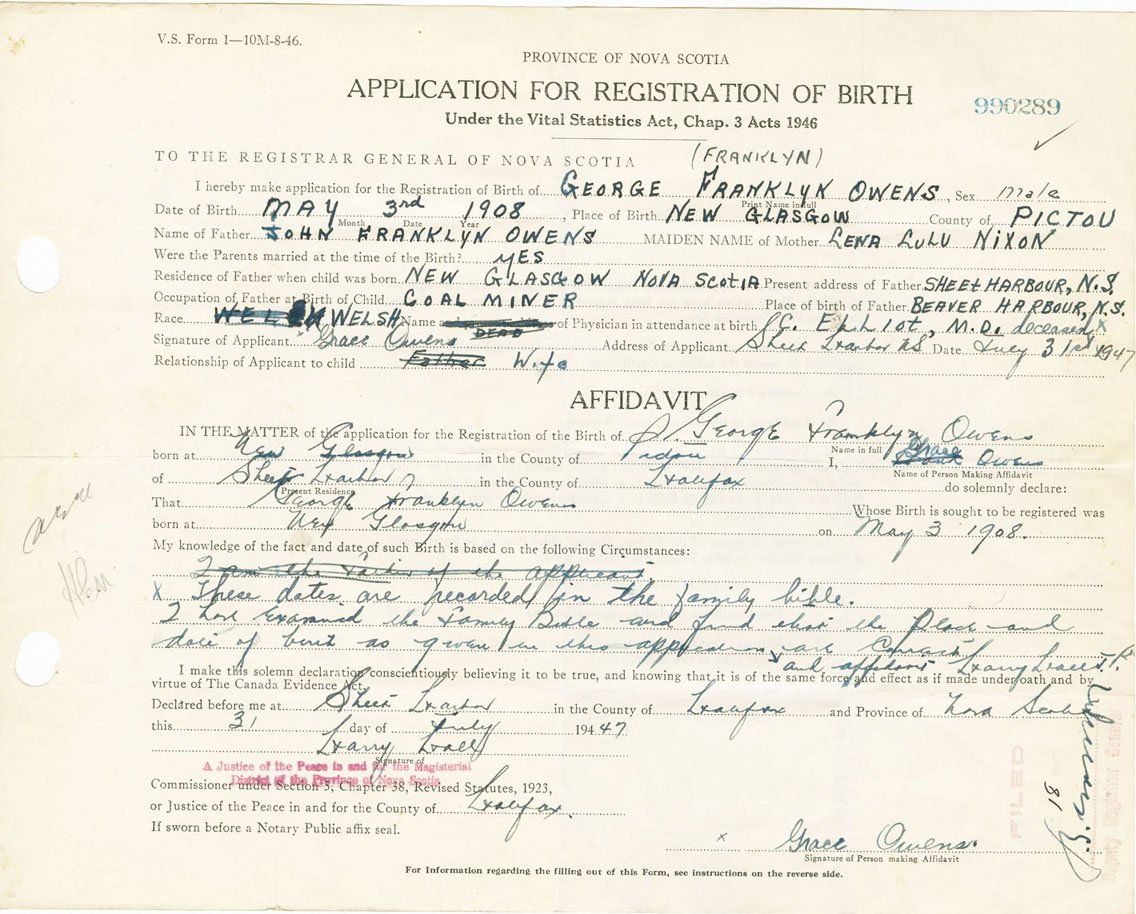 V.S. Form 1—10M-8-46.
PROVINCE OF NOVA SCOTIA
APPLICATION FOR REGISTRATION OF BIRTH
990289
Under the Vital Statistics Act, Chap. 3 Acts 1946
TO THE REGISTRAR GENERAL OF NOVA SCOTIA (FRANKLYN)
I hereby make application for the Registration of Birth of GEORGE FRANKLYN OWENS, Sex male
Print Name in full
Date of Birth MAY 3rd 1908, Place of Birth NEW GLASGOW County of PICTOU
Month Date Year
Name of Father JOHN FRANKLYN OWENS MAIDEN NAME of Mother LENA LULU NIXON
Were the Parents married at the time of the Birth? YES
Residence of Father when child was born NEW GLASGOW NOVA SCOTIA Present address of Father SHEET HARBOUR, N.S.
Occupation of Father at Birth of Child COAL MINER Place of birth of Father BEAVER HARBOUR, N.S.
Race WELSH Name of Physician in attendance at birth C. ELLIOT, M.D. deceased x
DEAD
Signature of Applicant x Grace Owens Address of Applicant Sheet Harbor NS Date July 31st 1947
Relationship of Applicant to child Father Wife
AFFIDAVIT
IN THE MATTER of the application for the Registration of the Birth of George Franklyn Owens
Name in full
born at New Glasgow in the County of Pictou I, Grace Owens
Name of Person Making Affidavit
of Sheet Harbor in the County of Halifax do solemnly declare:
Present Residence
That George Franklyn Owens Whose Birth is sought to be registered was
born at New Glasgow on May 3 1908.
My knowledge of the fact and date of such Birth is based on the following Circumstances:
I am the Father of the applicant
X These dates are recorded in the family bible.
I have Examined the Family Bible and find that the Place and
date of birth as given in this application are Correct
and affidavit Harry Hall J.P.
I make this solemn declaration conscientiously believing it to be true, and knowing that it is of the same force and effect as if made under oath and by
virtue of The Canada Evidence Act.
Declared before me at Sheet Harbor in the County of Halifax and Province of Nova Scotia
this 31 day of July 194 47
Harry Hall
Signature of
A Justice of the Peace in and for the Magisterial
District of the Province of Nova Scotia
Commissioner under Section 5, Chapter 38, Revised Statutes, 1923,
or Justice of the Peace in and for the County of Halifax.
If sworn before a Notary Public affix seal.
x Grace Owens.
Signature of Person making Affidavit
For Information regarding the filling out of this Form, see instructions on the reverse side.
FILED
18
Deputy Registrar General